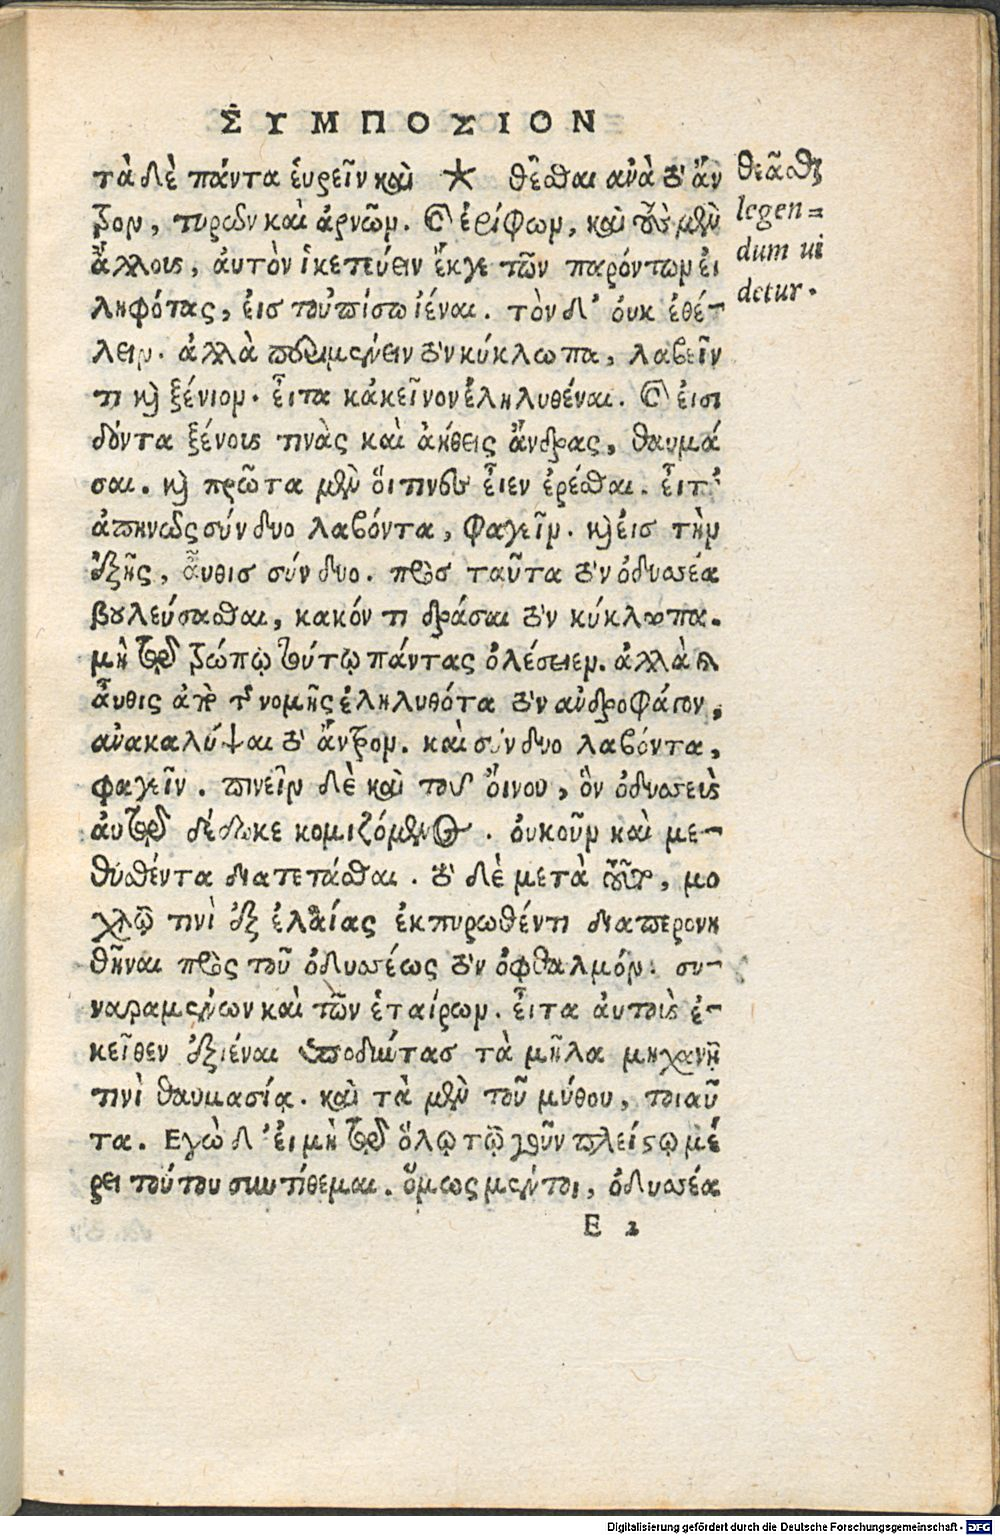 ΣΥΜΠΟΣΙΟΝ
τὰ δὲ πάντα ἑυρεῖν καὶ * θέσθαι ἀνὰ τὸ ἄν
τρον, τυρῶν καὶ ἀρνῶν. καὶ ἐρίφων, καὶ τοὺς μὲν
ἄλλους, ἀυτὸν ἱκετεύειν ἔκγε τῶν παρόντων ἐι
ληφότας, ἐισ τοὐπίσω ἰέναι. τὸν δ' ὀυκ ἐθέ-
λειν. ἀλλὰ περιμένειν τὸν κύκλωπα, λαβεῖν
τι καὶ ξένιον. εἶτα κἀκεῖνον ἐληλυθέναι. καὶ ἐισι
δόντα ξένους τινὰς καὶ ἀήθεις ἄνδρας, θαυμά
σαι. καὶ πρῶτα μὲν ὅιτινες εἶεν ἐρέσθαι. εἶτ'
ἀπηνῶς σύν δυο λαβόντα, φαγεῖν. καὶ ἐισ τὴν
ἑξῆς, αὖθισ σύν δυο. πρὸσ ταῦτα τὸν ὀδυσσέα
βουλεύσασθαι, κακόν τι δράσαι τὸν κύκλωπα.
μὴ τῷ τρόπῳ τούτῳ πάντας ὀλέσειεν. ἀλλὰ
αὖθις ἀπὸ τῆς νομῆς ἐληλυθότα τὸν ἀνδροφάγον,
ἀνακαλύψαι τὸ ἄντρον. καὶ σύν δυο λαβόντα,
φαγεῖν. πινεῖν δὲ καὶ τοῦ ὄινου, ὃν ὀδυσσεὺς
ἀυτῷ δέδωκε κομιζόμενος. ὀυκοῦν καὶ με-
θυσθέντα διατετάσθαι. τὸ δὲ μετὰ τοῦτο, μο
χλῷ τινὶ ἐξ ἐλαίας ἐκπυρωθέντι διαπερονη
θῆναι πρὸς τοῦ ὀδυσσέως τὸν ὀφθαλμόν. συ-
ναραμένων καὶ τῶν ἑταίρων. εἶτα ἀυτοὺς ἐ-
κεῖθεν ἐξιέναι ὑποδιώτασ τὰ μῆλα μηχανῇ
τινὶ θαυμασίᾳ. καὶ τὰ μὲν τοῦ μύθου, τοιαῦ
τα. Εγὼ δ' ἐι μὴ τῷ ὅλῳ τῷ γοῦν πλείστῳ μέ
ρει τούτου συντίθεμαι. ὅμως μέντοι, ὀδυσσέα
E 2
θεᾶσθαι
legen=
dum ui
detur.
Digitalisierung gefördert durch die Deutsche Forschungsgemeinschaft - DFG